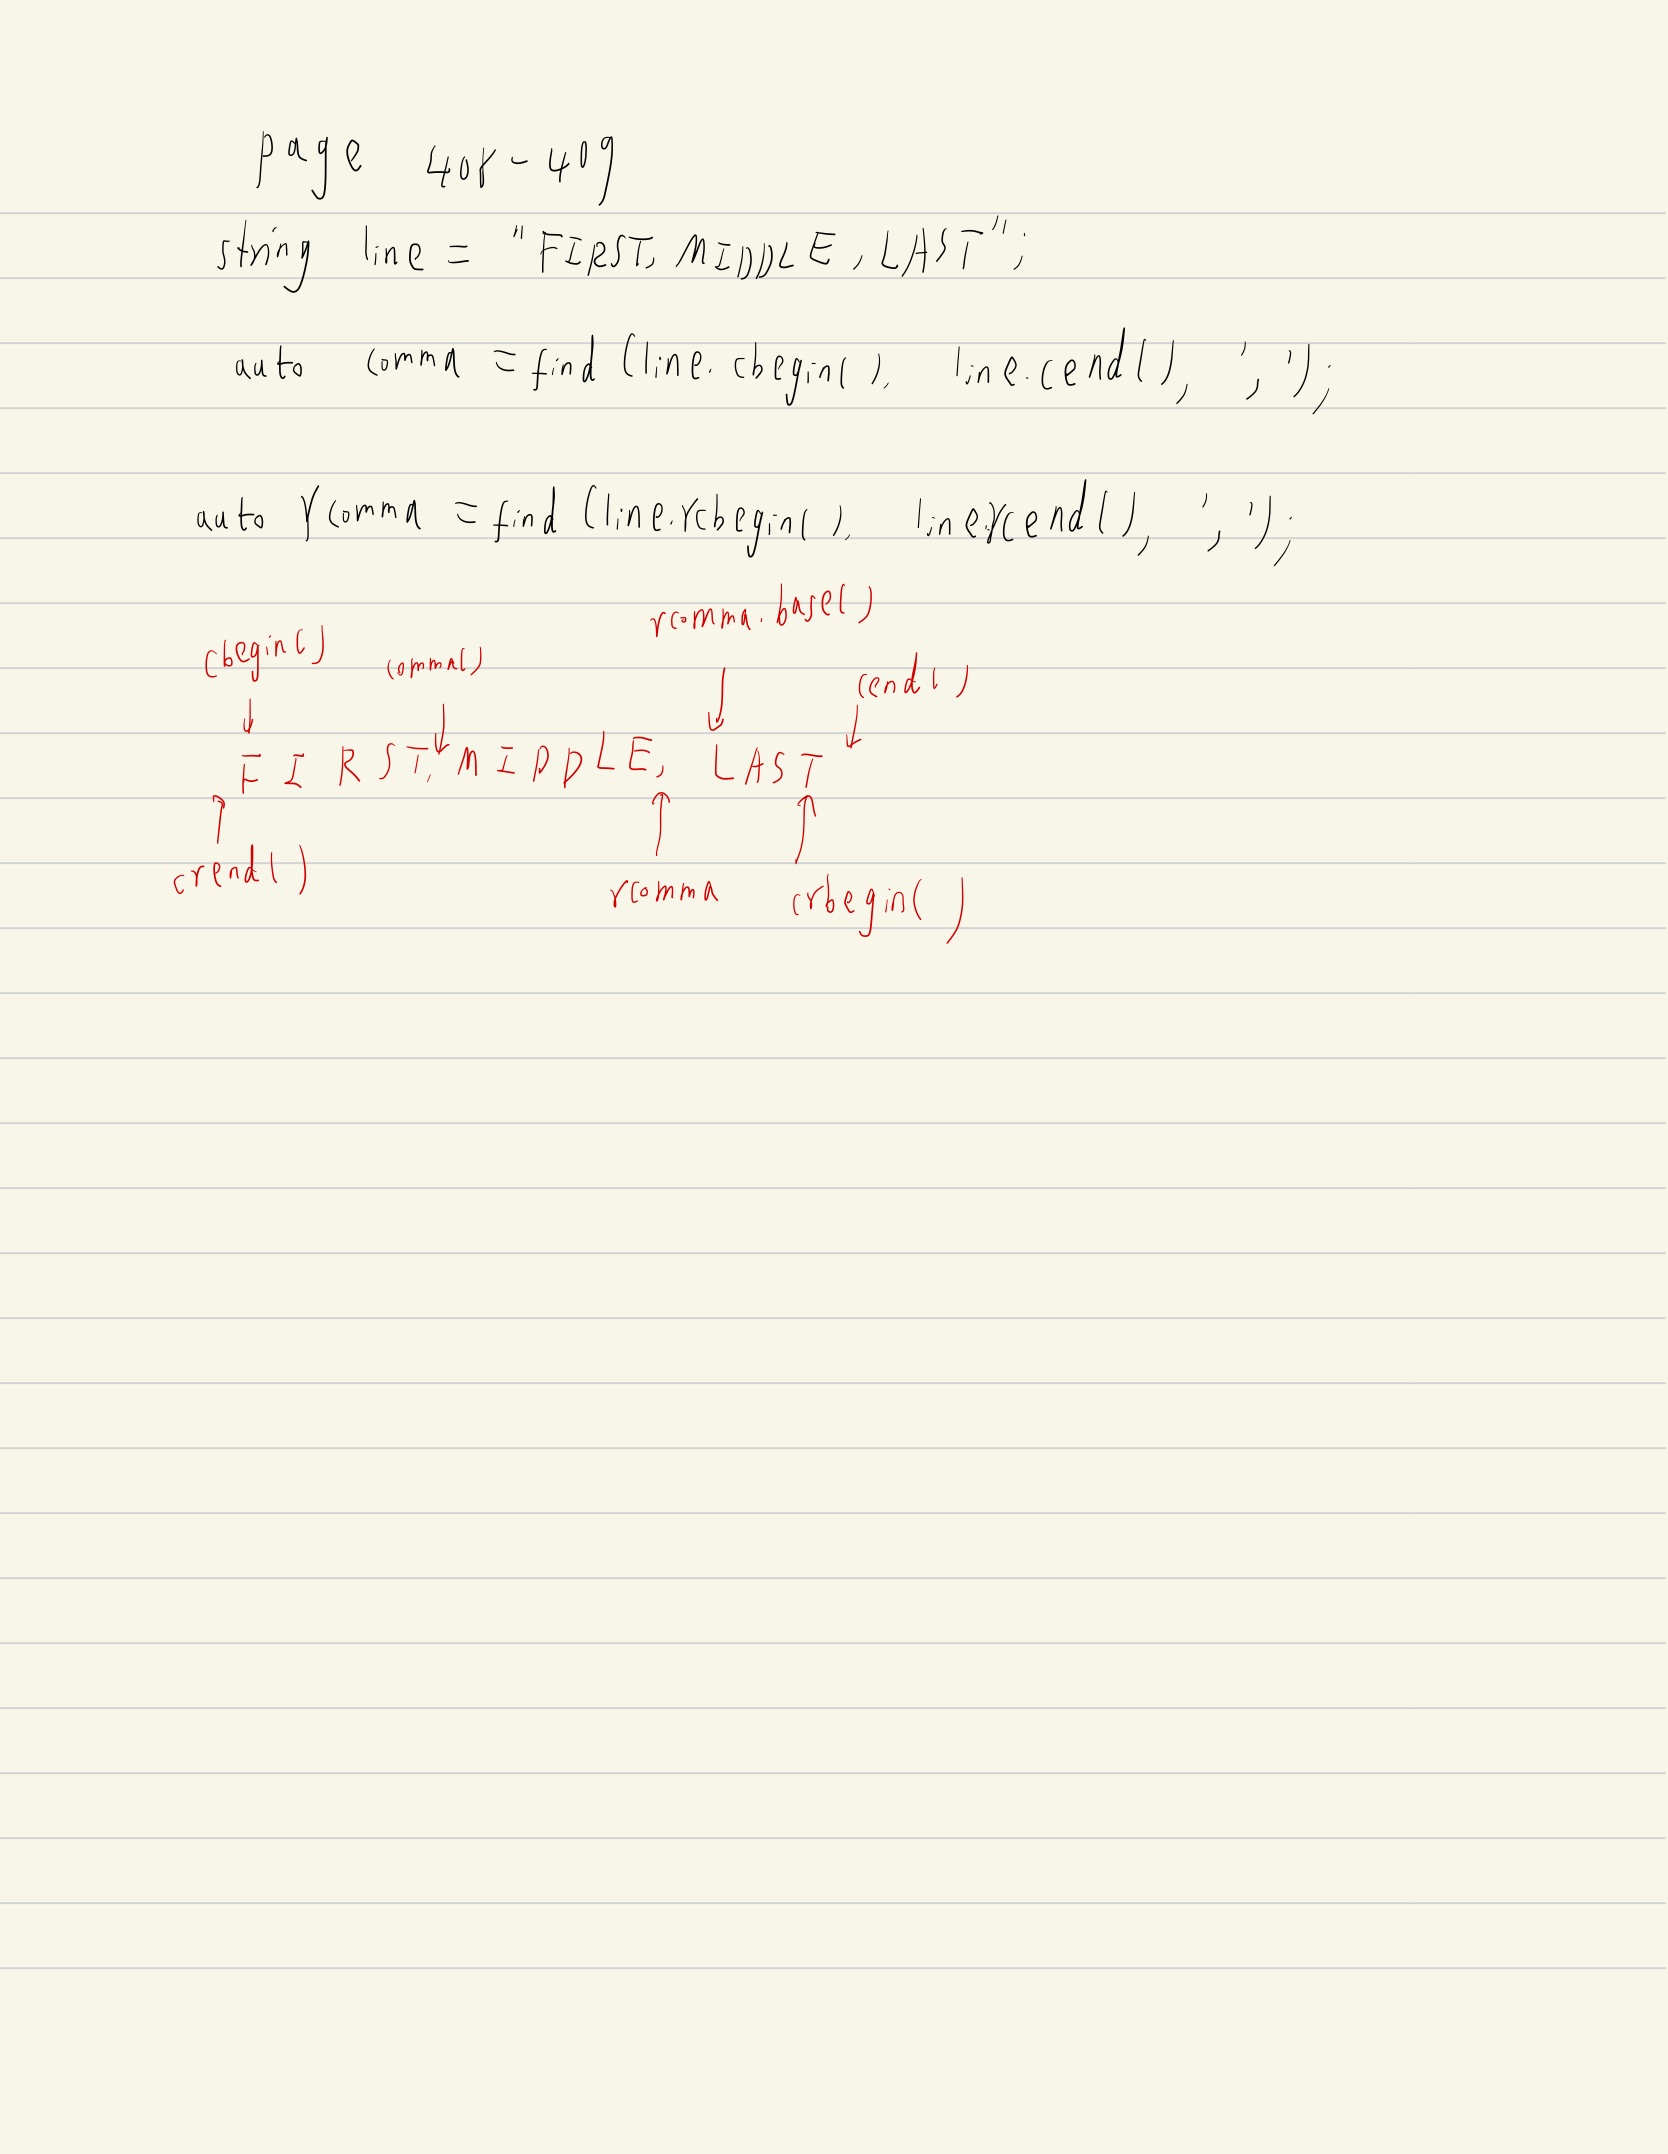 page 408-409
string line = "FIRST, MIDDLE, LAST";
auto comma = find (line. cbegin(), line.cend(), ',');
auto rcomma = find (line.rcbegin(), line.rcend(), ',');
rcomma.base()
cbegin() comma() cend()
FIRST, MIDDLE, LAST
crend() rcomma crbegin()